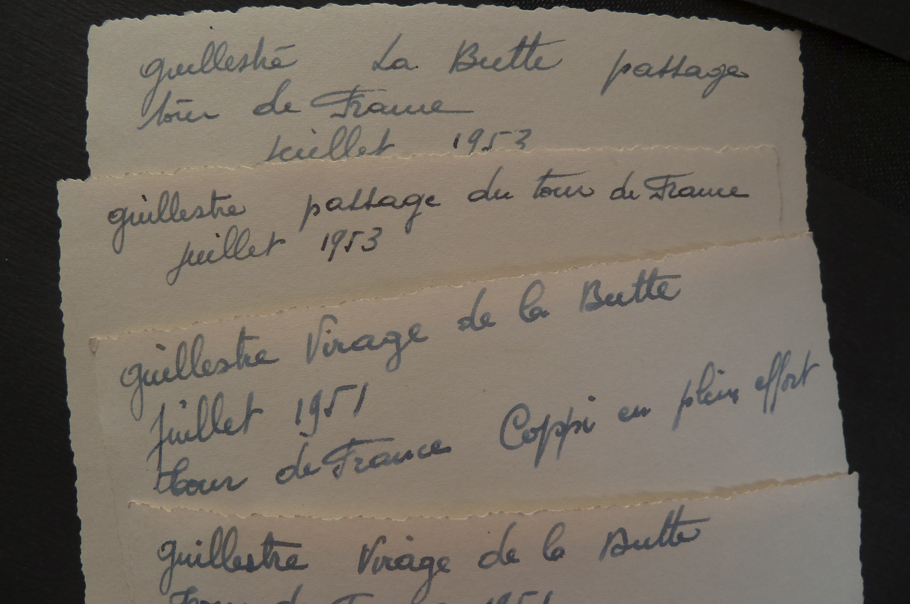 guillestre La Butte passage
tour de France
juillet 1953
guillestre passage du tour de France
juillet 1953
guillestre Virage de la Butte
juillet 1951
tour de France Coppi en plein effort
guillestre Virage de la Butte
tour de France 1951